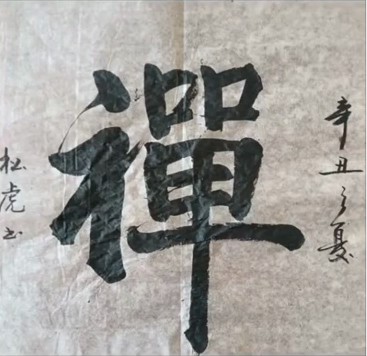 辛丑之夏
禪
松虎书